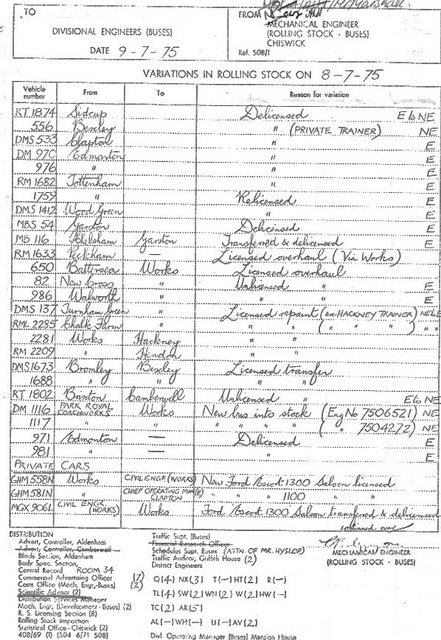 TO
FROM
MECHANICAL ENGINEER
DIVISIONAL ENGINEERS (BUSES)
(ROLLING STOCK - BUSES)
CHISWICK
DATE 9-7-75
Ref. 508/1
VARIATIONS IN ROLLING STOCK ON 8-7-75
Vehicle number From To Reason for variation
RT 1874 Sidcup Delicensed E to NE
556 Bexley " (PRIVATE TRAINER) NE
DMS 533 Clapton " E
DM 970 Edmonton " E
976 " " E
RM 1682 Tottenham " E
1759 " Relicensed E
DMS 1412 Wood Green " E
MBS 54 Garston Delicensed E
MB 116 Garston Transferred & delicensed E
RM 1633 Peckham Licensed overhaul (Via Works)
650 Battersea Works Licensed overhaul
82 New Cross " Unlicensed E
986 Walworth " " E
DMS 137 Turnham Green " Licensed repaint (ex HACKNEY TRAINER)
RML 2285 Chalk Farm " "
2281 Works Hackney "
RM 2209 " Hendon "
DMS 1673 Bromley Bexley Licensed transfer
1688 " " "
RT 1802 Brixton Camberwell Unlicensed " E to NE
DM 1116 PARK ROYAL COACHWORKS Works New bus into stock (Eng No 7506521) NE
1117 " " " ( " " 7504272) NE
971 Edmonton — Delicensed E
981 " — " E
PRIVATE CARS
GHM 558N Works CIVIL ENGR (WORKS) New Ford Escort 1300 Saloon licensed
GHM 581N " CHIEF OPERATING MAN(E) CLAPTON " " 1100 " "
MGX 906L CIVIL ENGR. (WORKS) Works Ford Escort 1300 Saloon transferred & delicensed
DISTRIBUTION
Advert, Controller, Aldenham
Advert, Controller, Camberwell
Blinds Section, Aldenham
Body Spec. Section,
Central Record ROOM 34
Commercial Advertising Officer
Costs Office (Mech. Engr. Buses) (2)
Scientific Advisor (2)
Distribution Services Manager
Mech. Engr. (Development - Buses) (2)
R. S. Licensing Section (8)
Rolling Stock Inspection
Statistical Office - Chiswick (2)
408/69 (1) (504 6/71 508)
Traffic Supt. (Buses)
Financial Research Officer
Schedules Supt. Buses (ATTN OF MR. HYSLOP)
Traffic Auditor, Griffith House (2)
District Engineers
Q(4) NX(3) T(-) HT(2) R(-)
TL(4) SW(2) WN(2) W(2) HW(-)
TC(2) AR(5)
AL(-) WH(-) U(-) AV(2)
Divl. Operating Manager (Buses) Mansion House
MECHANICAL ENGINEER
(ROLLING STOCK - BUSES)